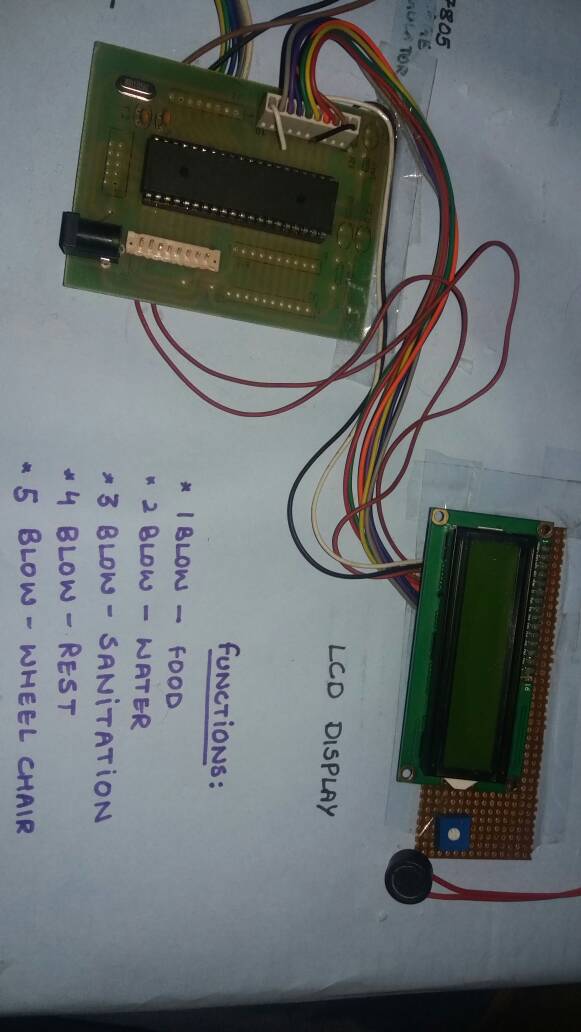 7805
LCD DISPLAY
FUNCTIONS:
* 1 BLOW - FOOD
* 2 BLOW - WATER
* 3 BLOW - SANITATION
* 4 BLOW - REST
* 5 BLOW - WHEEL CHAIR